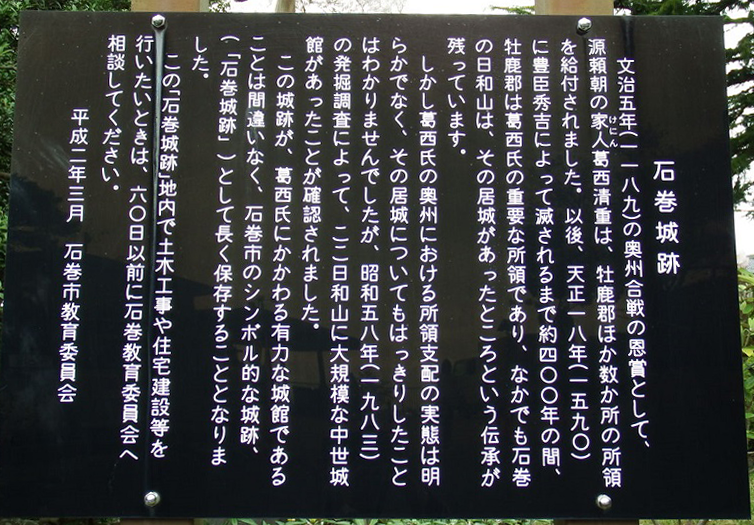 石巻城跡
文治五年(一一八九)の奥州合戦の恩賞として、
源頼朝の家人葛西清重は、牡鹿郡ほか数か所の所領
けにん
を給付されました。以後、天正一八年(一五九〇)
に豊臣秀吉によって滅されるまで約四〇〇年の間、
牡鹿郡は葛西氏の重要な所領であり、なかでも石巻
の日和山は、その居城があったところという伝承が
残っています。
しかし葛西氏の奥州における所領支配の実態は明
らかでなく、その居城についてもはっきりしたこと
はわかりませんでしたが、昭和五八年(一九八三)
の発掘調査によって、ここ日和山に大規模な中世城
館があったことが確認されました。
この城跡が、葛西氏にかかわる有力な城館である
ことは間違いなく、石巻市のシンボル的な城跡、
(「石巻城跡」)として長く保存することとなりま
した。
この「石巻城跡」地内で土木工事や住宅建設等を
行いたいときは、六〇日以前に石巻教育委員会へ
相談してください。
平成二年三月 石巻市教育委員会